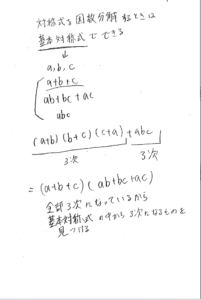 対称式を因数分解するときは
基本対称式でできる
↓
a, b, c
a+b+c
ab+bc+ac
abc
(a+b)(b+c)(c+a)+abc
3次 3次
=(a+b+c)(ab+bc+ac)
全部3次になっているから
基本対称式の中から3次になるものを
見つける